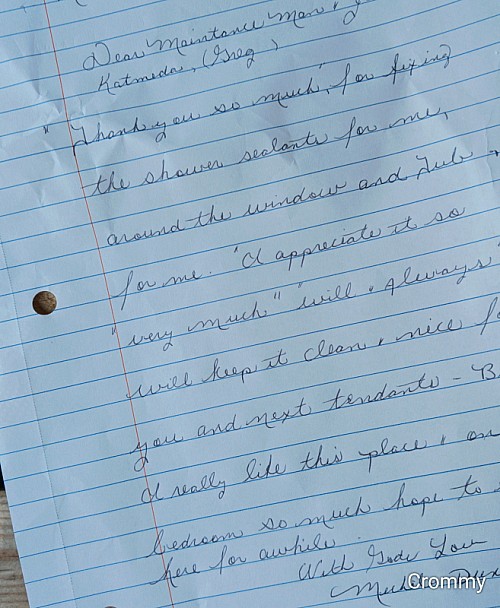 Dear Maintance Man,
Katmeda, (Greg)
"Thank you so much", for fixing
the shower sealants for me,
around the window and Tub
for me. "I appreciate it so
"very much" "will always"
will keep it clean, nice
you and next tendants -
I really like this place,
bedroom so much hope to
here for awhile.
With Gods Love
Crommy